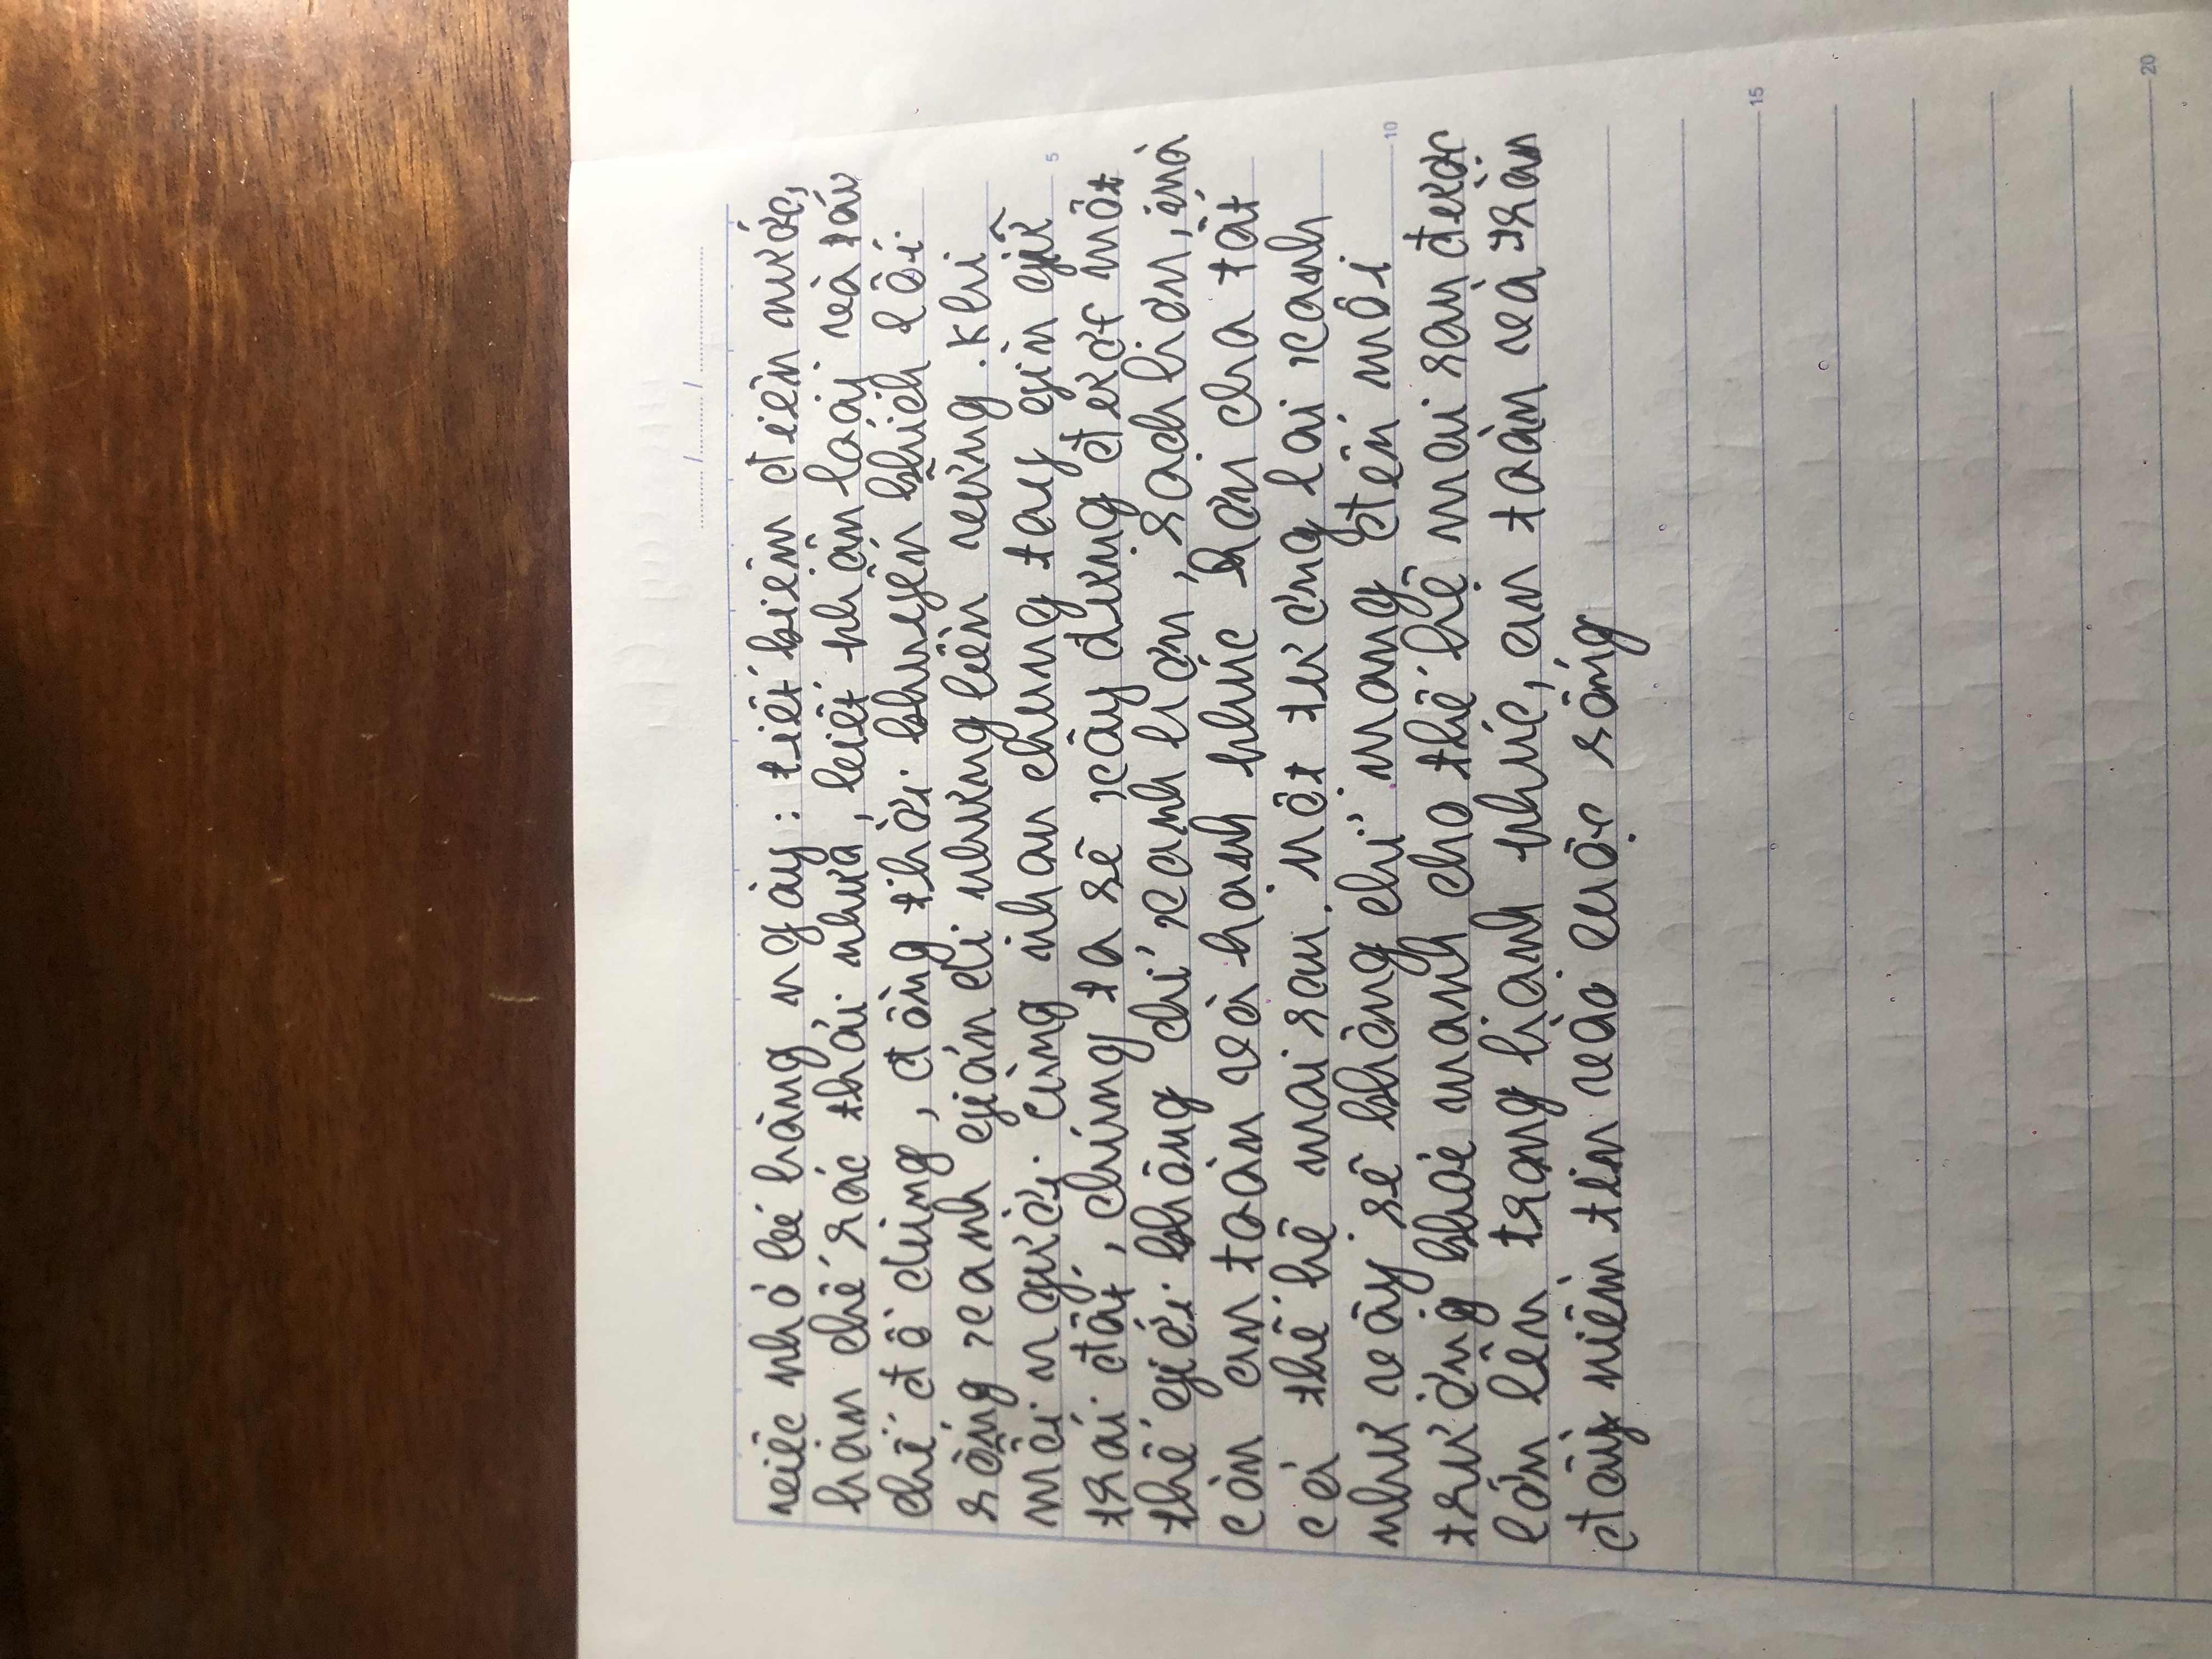 việc nhỏ bé hàng ngày: tiết kiệm điện nước,
hạn chế rác thải nhựa, biết phân loại và tái
chế đồ dùng, đồng thời khuyến khích lối
sống xanh giản dị nhưng bền vững. Khi
mỗi người cùng nhau chung tay gìn giữ
trái đất, chúng ta sẽ xây dựng được một
thế giới không chỉ xanh hơn, sạch hơn, mà
còn an toàn và hạnh phúc hơn cho tất
cả thế hệ mai sau. một tương lai xanh
như vậy sẽ không chỉ mang đến môi
trường khoẻ mạnh cho thế hệ mai sau được
lớn lên trong hạnh phúc, an toàn và tràn
đầy niềm tin vào cuộc sống
5
10
15
20